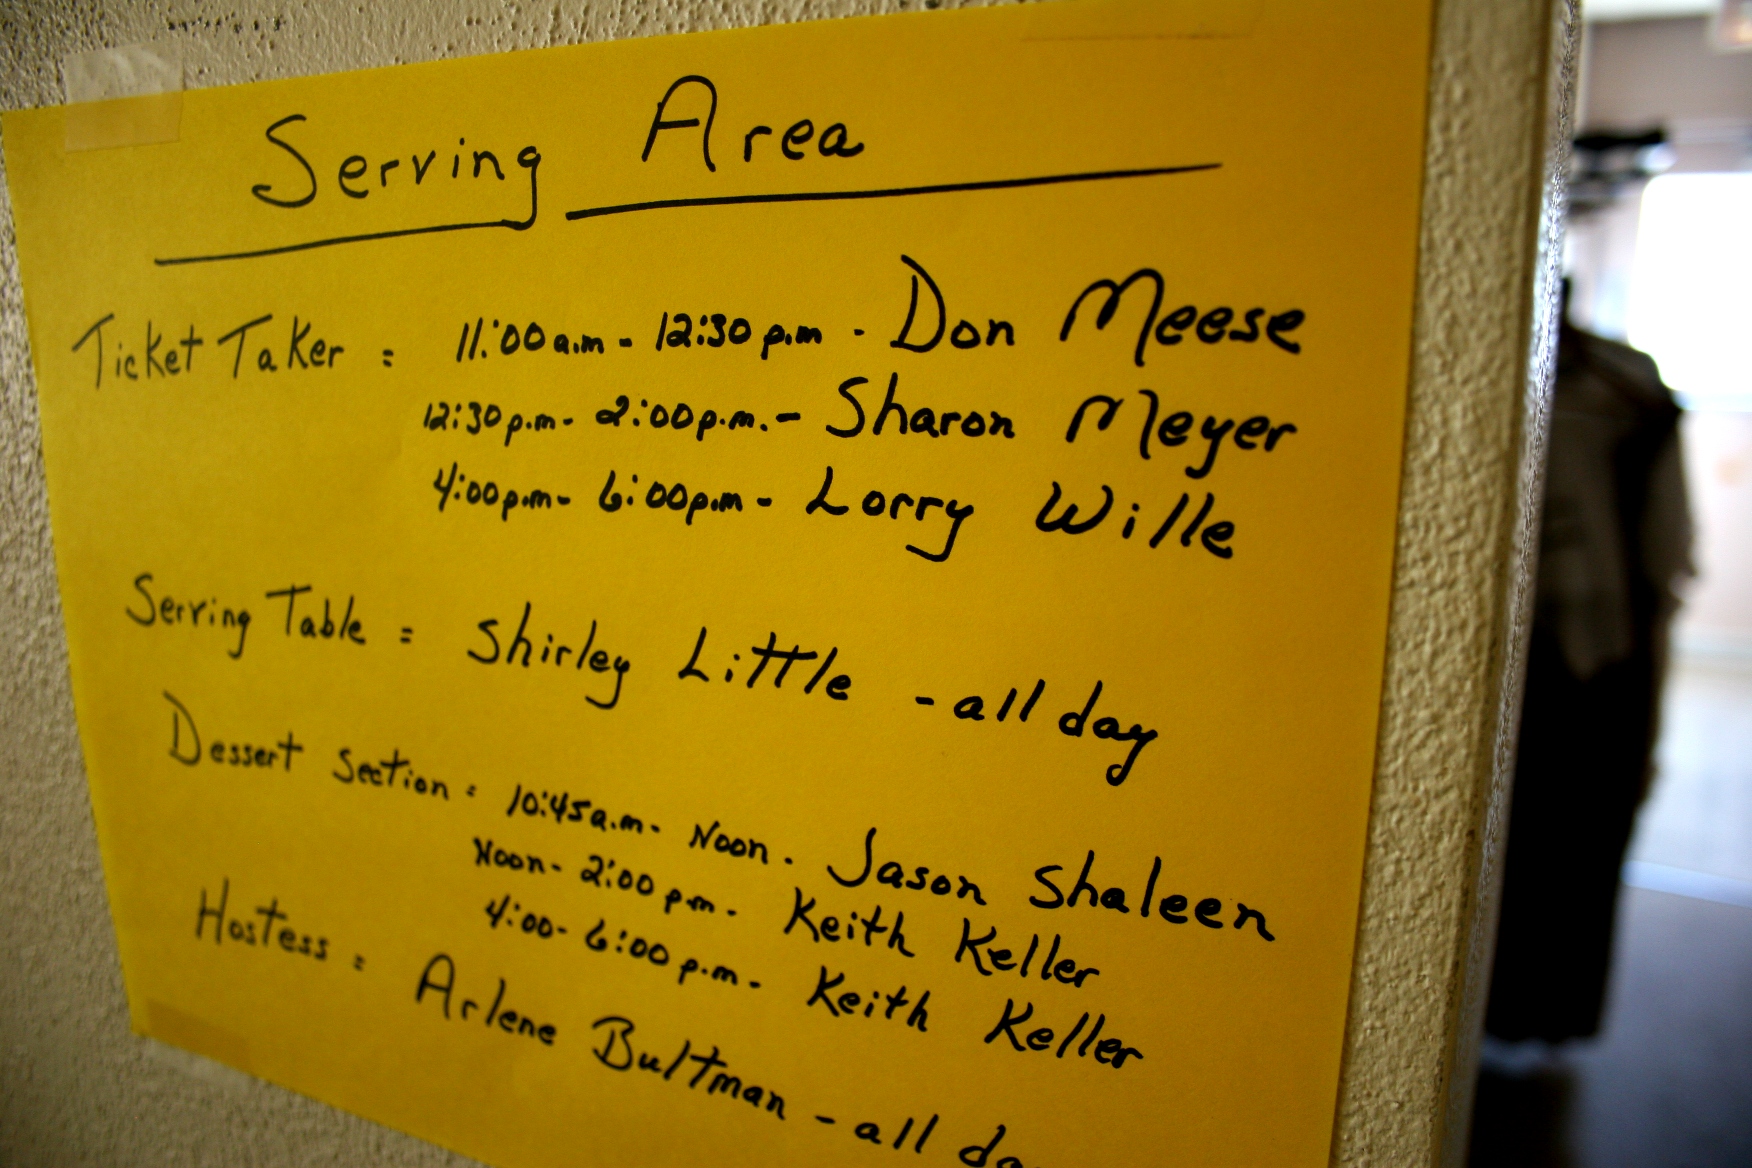 Serving Area
Ticket Taker = 11:00 a.m - 12:30 p.m - Don Meese
12:30 p.m - 2:00 p.m. - Sharon Meyer
4:00 p.m - 6:00 p.m - Lorry Wille
Serving Table = Shirley Little - all day
Dessert Section = 10:45 a.m - Noon - Jason Shaleen
Noon - 2:00 p.m - Keith Keller
4:00 - 6:00 p.m - Keith Keller
Hostess = Arlene Bultman - all da